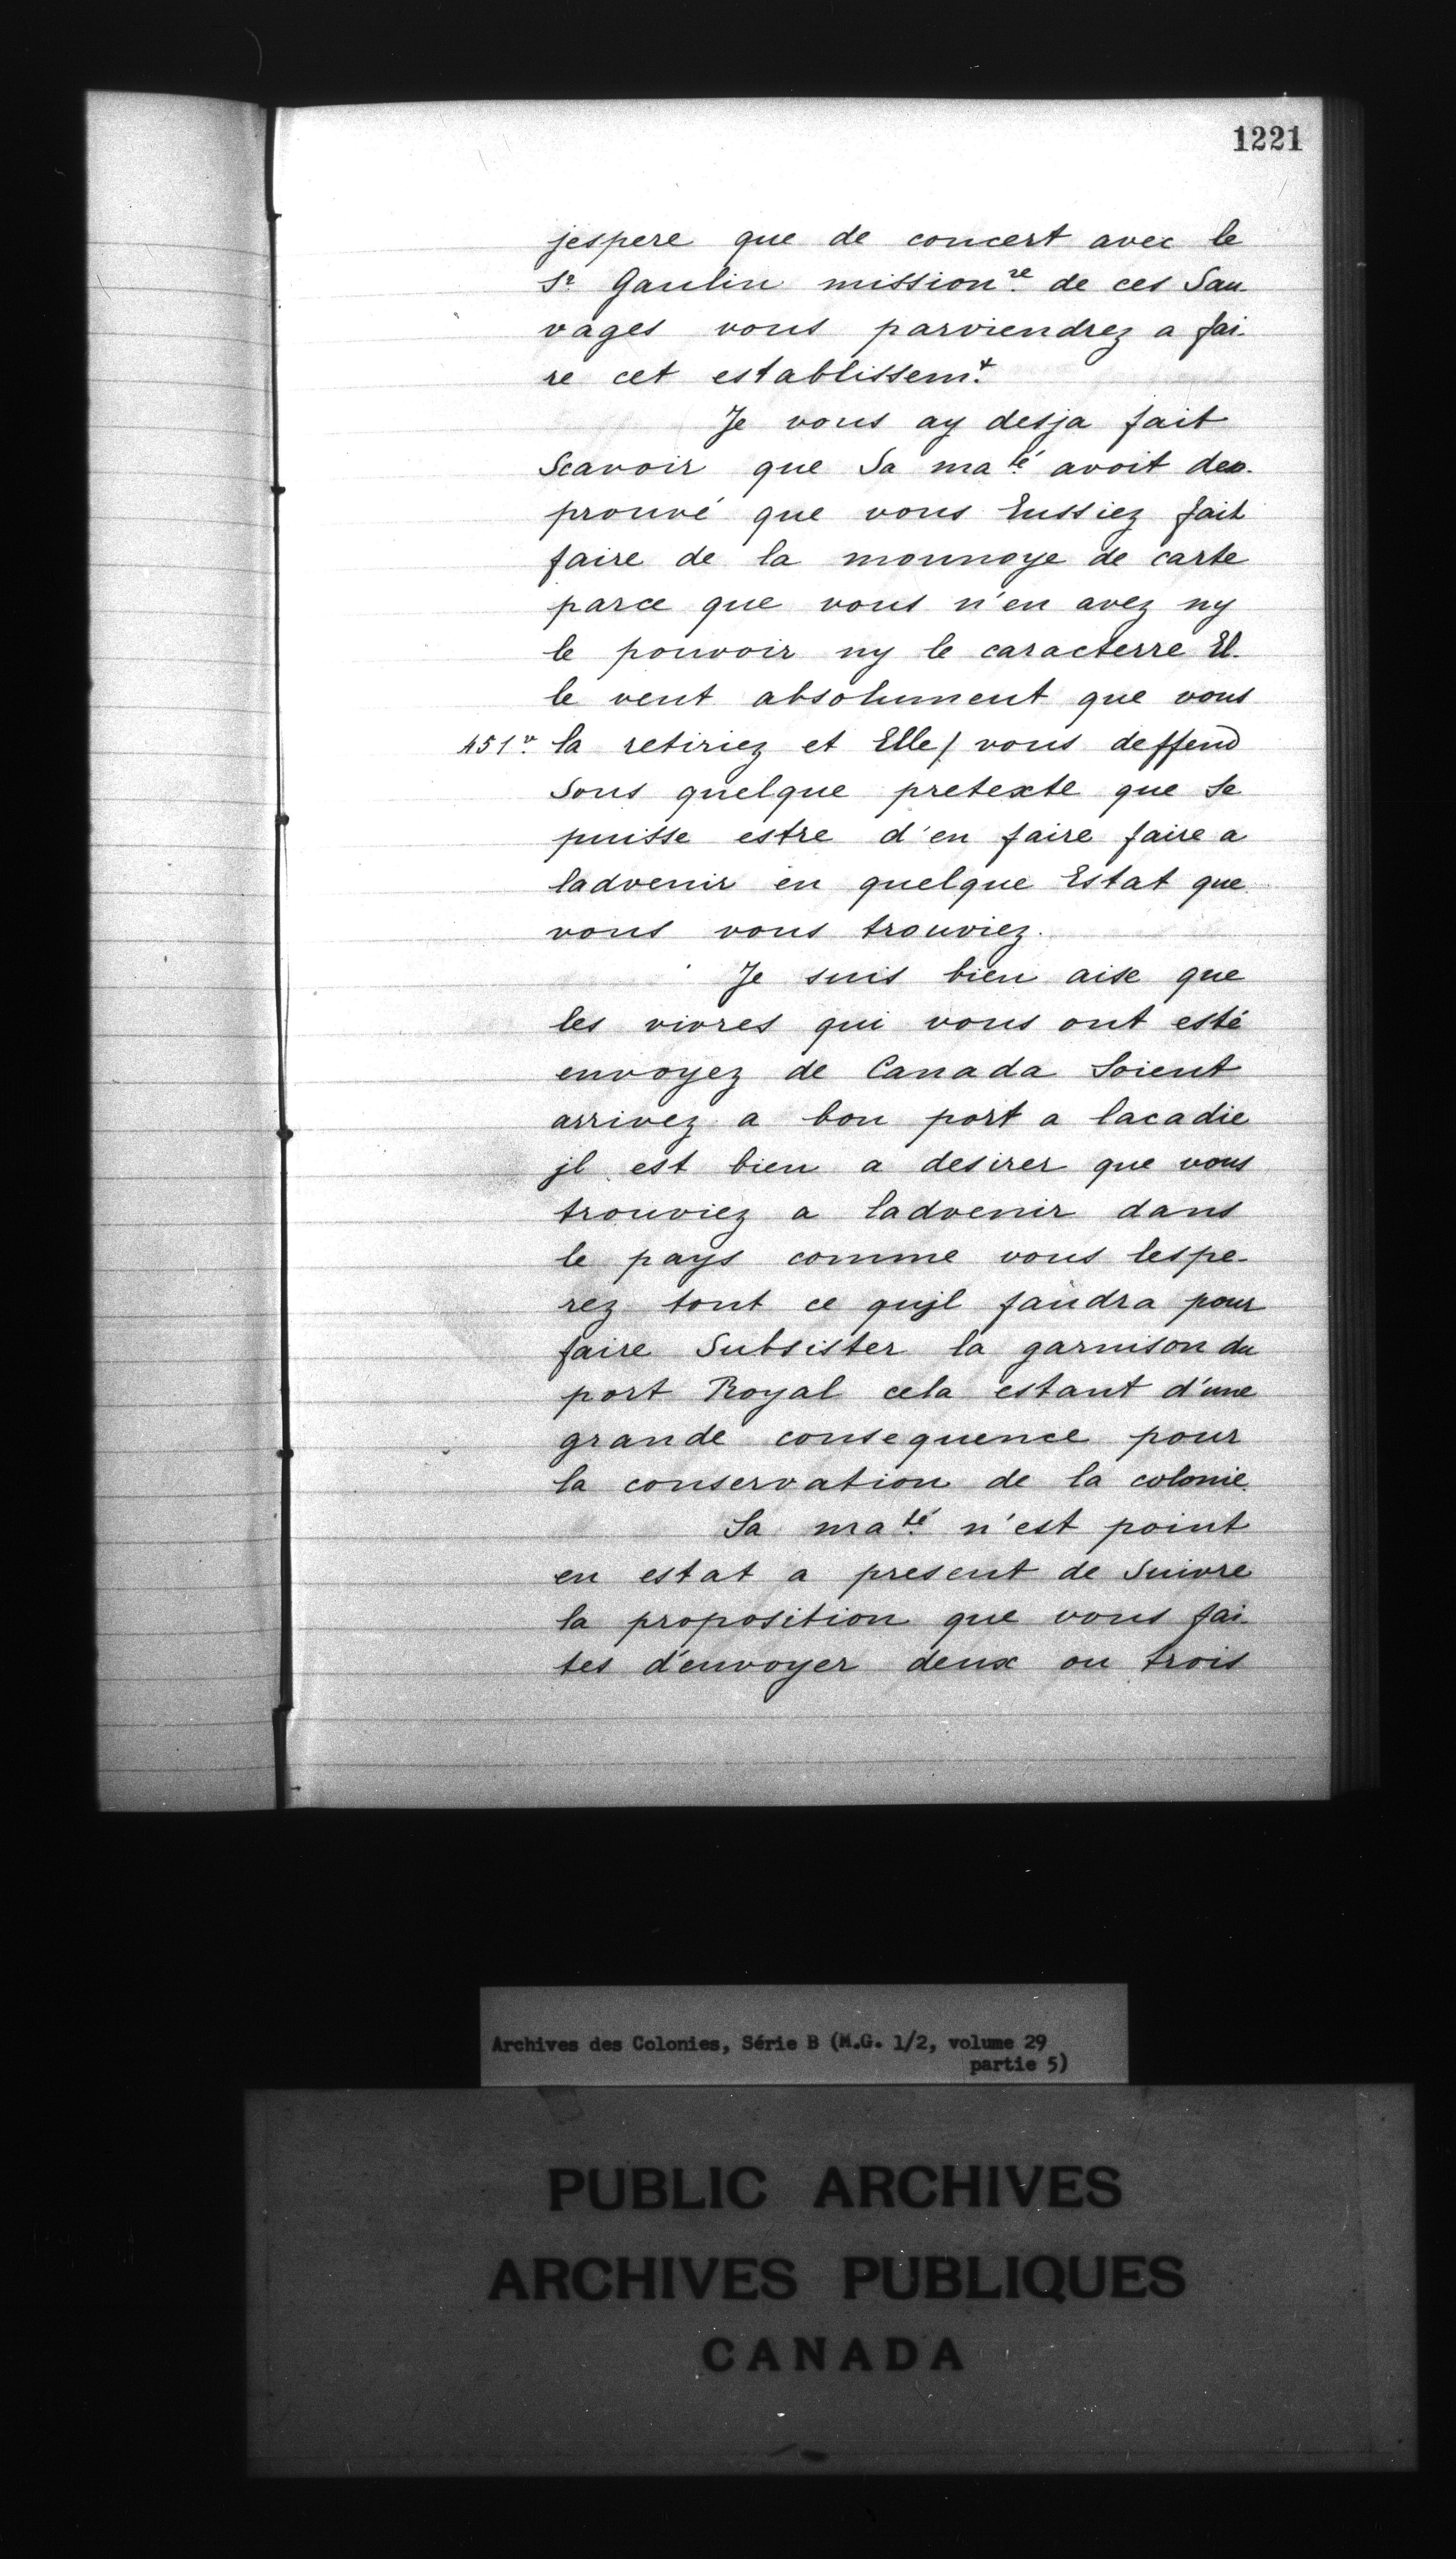 1221
jespere que de concert avec le
Sr. Gaulin missionre. de ces Sau-
vages vous parviendrez a fai-
re cet establissemt.
Je vous ay desja fait
Scavoir que Sa maté. avoit des-
prouvé que vous Eussiez fait
faire de la monnoye de carte
parce que vous n'en avez ny
le pouvoir ny le caracterre El-
le veut absolument que vous
451v. la retiriez et Elle/ vous deffend
Sous quelque pretexte que se
puisse estre d'en faire faire a
ladvenir en quelque Estat que
vous vous trouviez.
Je suis bien aise que
les vivres qui vous ont esté
envoyez de Canada Soient
arrivez a bon port a lacadie
jl est bien a desirer que vous
trouviez a ladvenir dans
le pays comme vous lespe-
rez tout ce qujl faudra pour
faire Subsister la garnison du
port Royal cela estant d'une
grande consequence pour
la conservation de la colonie.
Sa maté. n'est point
en estat a present de Suivre
la proposition que vous fai-
tes d'envoyer deux ou trois
Archives des Colonies, Série B (M.G. 1/2, volume 29
partie 5)
PUBLIC ARCHIVES
ARCHIVES PUBLIQUES
CANADA